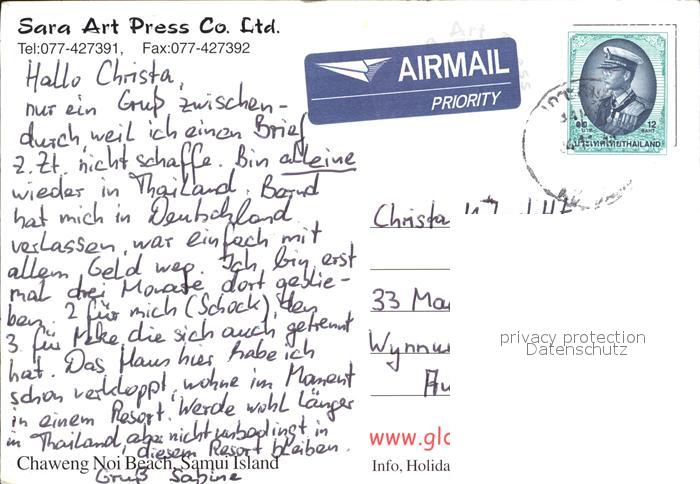 Sara Art Press Co. Ltd.
Tel:077-427391, Fax:077-427392
AIRMAIL
PRIORITY
12
BAHT
ประเทศไทย THAILAND
Hallo Christa,
nur ein Gruß zwischen-
durch, weil ich einen Brief
z. Zt. nicht schaffe. Bin alleine
wieder in Thailand. Bernd
hat mich in Deutschland
verlassen, war einfach mit
allem Geld weg. Ich bin erst
mal drei Monate dort geblie-
ben. 2 für mich (Schock), den
3. für Meke, die sich auch getrennt
hat. Das Haus hier habe ich
schon verkloppt, wohne im Moment
in einem Resort. Werde wohl länger
in Thailand, aber nicht unbedingt in
diesem Resort bleiben.
Gruß Sabine
Chaweng Noi Beach, Samui Island
Christa
33 Ma
Wynnu
Au
www.glo
Info, Holida
privacy protection
Datenschutz